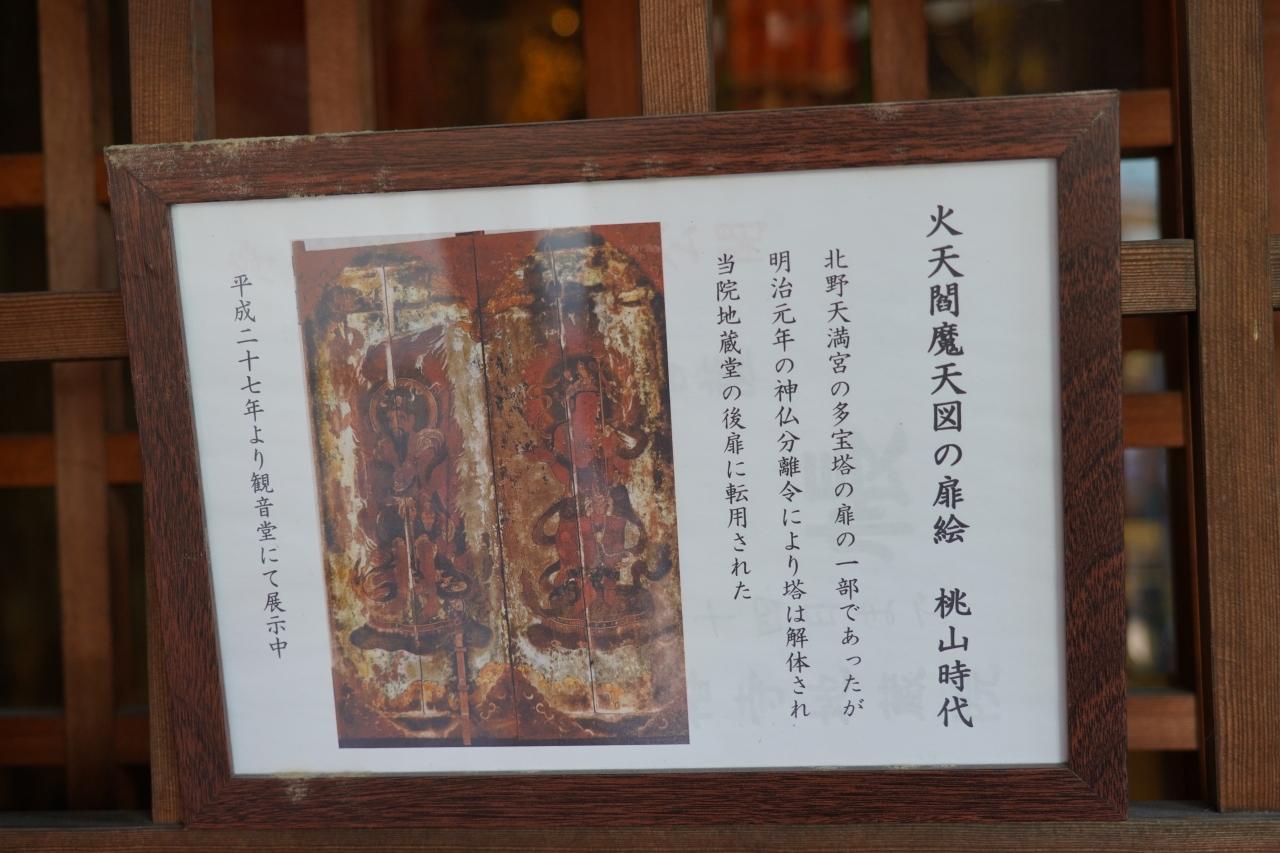 火天閻魔天図の扉絵　桃山時代
北野天満宮の多宝塔の扉の一部であったが
明治元年の神仏分離令により塔は解体され
当院地蔵堂の後扉に転用された
平成二十七年より観音堂にて展示中